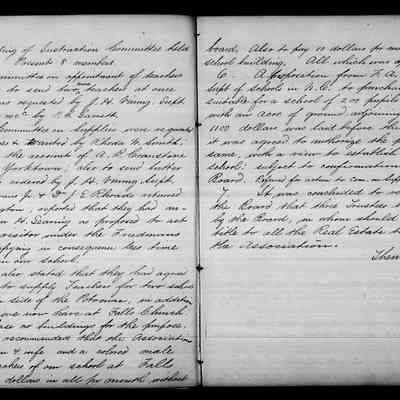 ting of Instruction Committee held
Present 8 members.
ommittee on appointment of teachers
to send two teachers at once
as requested by J. H. Vining, Supt
by P. B. Garrett
Committee on Supplies were requested
by Rhoda W. Smith:
the accounts of A. P. Cranstone
Yorktown; also to send butter
ordered by J. H. Vining, Supt
J. & Dr J. E. Rhoads returned
reported that they had
H. Leaning as proposed to act
visitor under the Freedmens
in consequence less time
our school.
also stated that they had agreed
to supply Teachers for two schools
side of the Potomac, in addition
one now have at Falls Church
no buildings for the purpose.
recommended that the Association
& wife and a colored male
teachers of our school at Falls
dollars in all pr month, without
board. Also to pay 10 dollars for
school building. All which was
6. A proposition from F. A.
Supt of schools in N. C. to purchase
suitable for a school of 200 pupils
with an acre of ground adjoining
1100 dollars was laid before the
it was agreed to authorize the
same, with a view to establish
school; subject to confirmation
Board.
7. It was concluded to
the Board that three Trustees
by the Board, in whom should
title to all the Real Estate
the Association.
Then